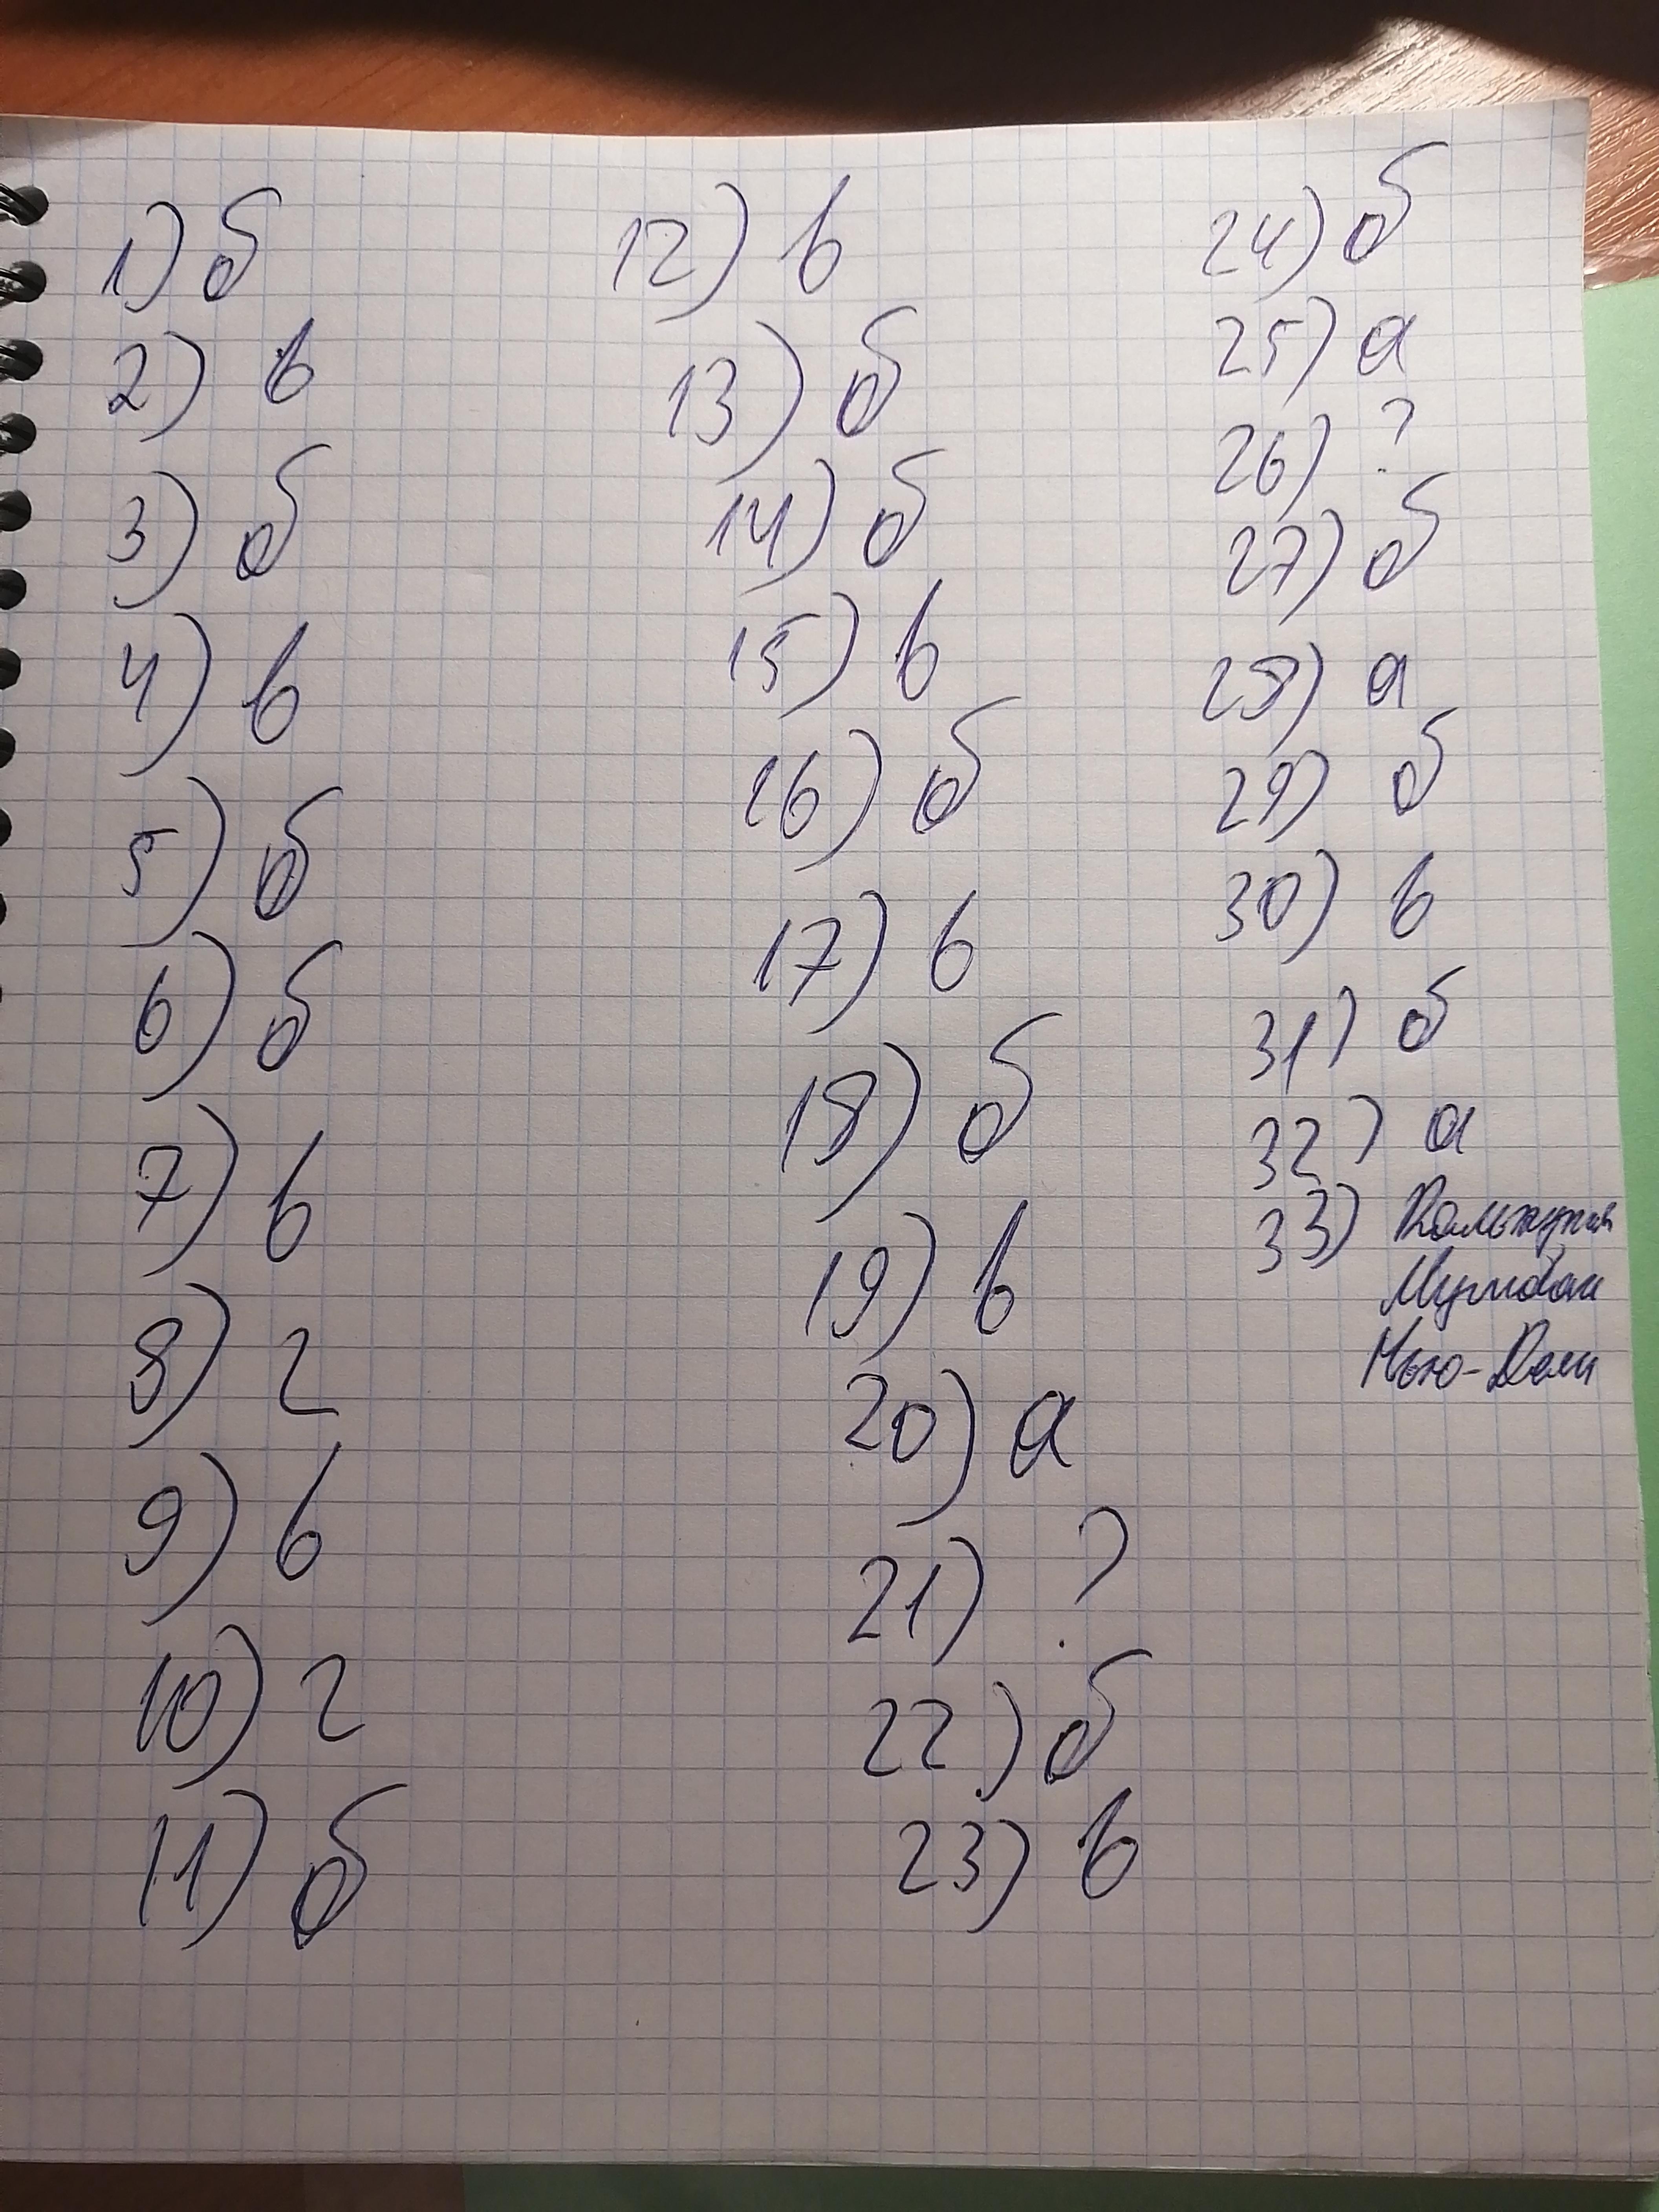 1) б
2) в
3) б
4) в
5) б
6) б
7) в
8) г
9) в
10) г
11) б
12) в
13) б
14) б
15) в
16) б
17) в
18) б
19) в
20) а
21) ?
22) б
23) в
24) б
25) а
26) ?
27) б
28) а
29) б
30) в
31) б
32) а
33)
Мумбаи
Нью-Дели